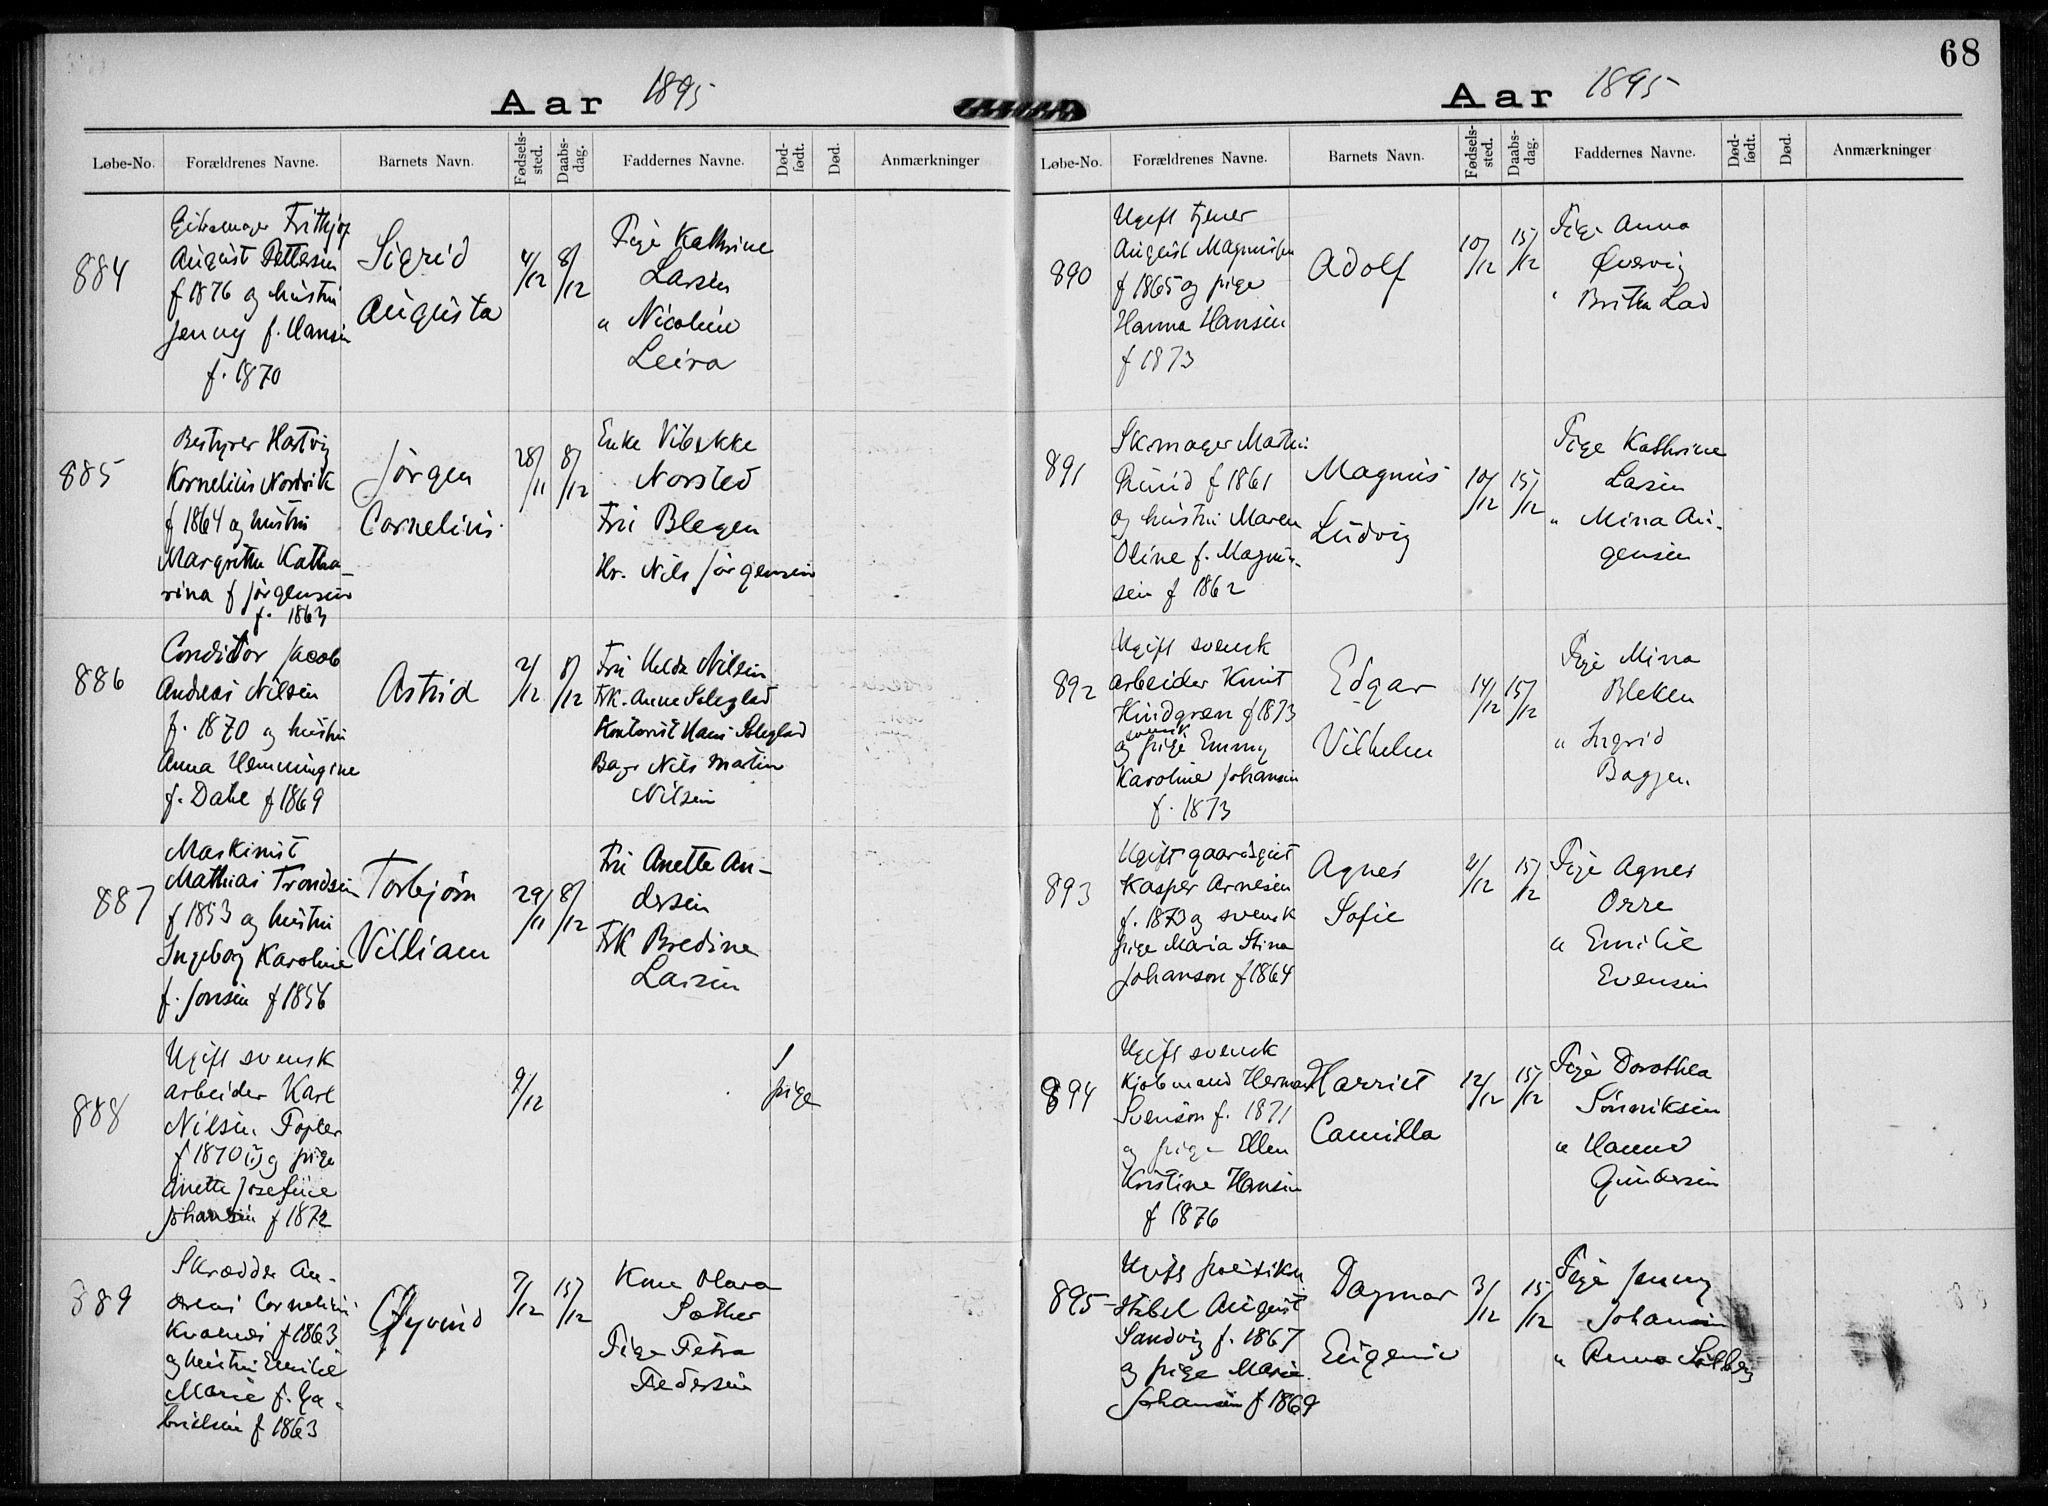 68
Aar 1895
Løbe-No. Forældrenes Navne. Barnets Navn. Fødsels-sted. Daabs-dag. Faddernes Navne. Død-født. Død. Anmærkninger
884
Frithjof
August Pettersen
f 1876 og hustru
Jenny f. Hansen
f. 1870
Sigrid
Augusta
4/12 8/12
Pige Kathrine
Larsen
" Nicoline
Leira
885
Bestyrer Hartvig
Kornelius Nordvik
f 1864 og hustru
Margrethe Katha-
rina f Jørgensen
f. 1863
Jørgen
Cornelius
28/11 8/12
Enke Vibekke
Norsted
Fru Blegen
Hr. Nils Jørgensen
886
Conditor Jacob
Andreas Nilsen
f. 1870 og hustru
Anna Hemmingine
f. Dahl f 1869
Astrid
2/12 8/12
Fru Helda Nilsen
Frk. Anna Soleglad
Kontorist Hans Soleglad
Nils Martin
Nilsen
887
Maskinist
Mathias Trondsen
f 1853 og hustru
Ingeborg Karoline
f. Jonsen f 1856
Torbjørn
Villiam
29/11 8/12
Fru Anette An-
dersen
Frk Bredine
Larsen
888
Ugift svensk
arbeider Karl
Nilsen
f 1870 (?) og pige
Anette Josefine
Johansen f 1872
9/12
1
pige
889
Skrædder An-
dreas Cornelius
f 1863
og hustru Emilie
Marie f. Ga-
brielsen f 1863
Øyvind
7/12 15/12
Kone Mara
Sæther
Pige Petra
Pedersen
Aar 1895
Løbe-No. Forældrenes Navne. Barnets Navn. Fødsels-sted. Daabs-dag. Faddernes Navne. Død-født. Død. Anmærkninger
890
Ugift tjener
August Magnussen
f 1865 og pige
Hanna Hansen
f 1873
Adolf
10/12 15/12
Pige Anna
Øvervig
" Britha Lad
891
Skomager Martin
Ruud f 1861
og hustru Maren
Oline f. Magnus-
sen f 1862
Magnus
Ludvig
10/12 15/12
Pige Kathrine
Larsen
" Mina Au-
gensen
892
Ugift svensk
arbeider Knut
Kindgren f 1873
og svensk pige Emmy
Karoline Johansen
f. 1873
Edgar
Vilhelm
14/12 15/12
Pige Mina
Bleken
" Ingrid
Baggen
893
Ugift gaardsgut
Kasper Arnesen
f. 1873 og svensk
pige Maria Stina
Johanson f 1864
Agnes
Sofie
4/12 15/12
Pige Agnes
Orre
" Emilie
Evensen
894
Ugift svensk
Kjøbmand Herman
Svenson f. 1871
og pige Ellen
Kristine Hansen
f 1876
Harriet
Camilla
12/12 15/12
Pige Dorothea
Sønniksen
" Hanna
Gundersen
895
Ugift politikon-
stabel August
Sandvig f. 1867
og pige Marie
Johansen f 1869
Dagmar
Eugenie
3/12 15/12
Pige Jenny
Johansen
" Anna Solberg